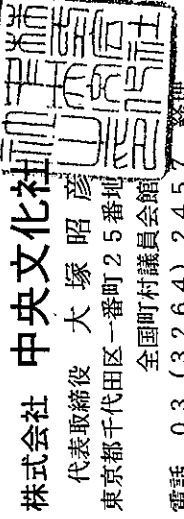 株式会社 中央文化社
代表取締役 大塚昭彦
東京都千代田区一番町25番地
全国町村議員会館
電話 03 (3264) 2457